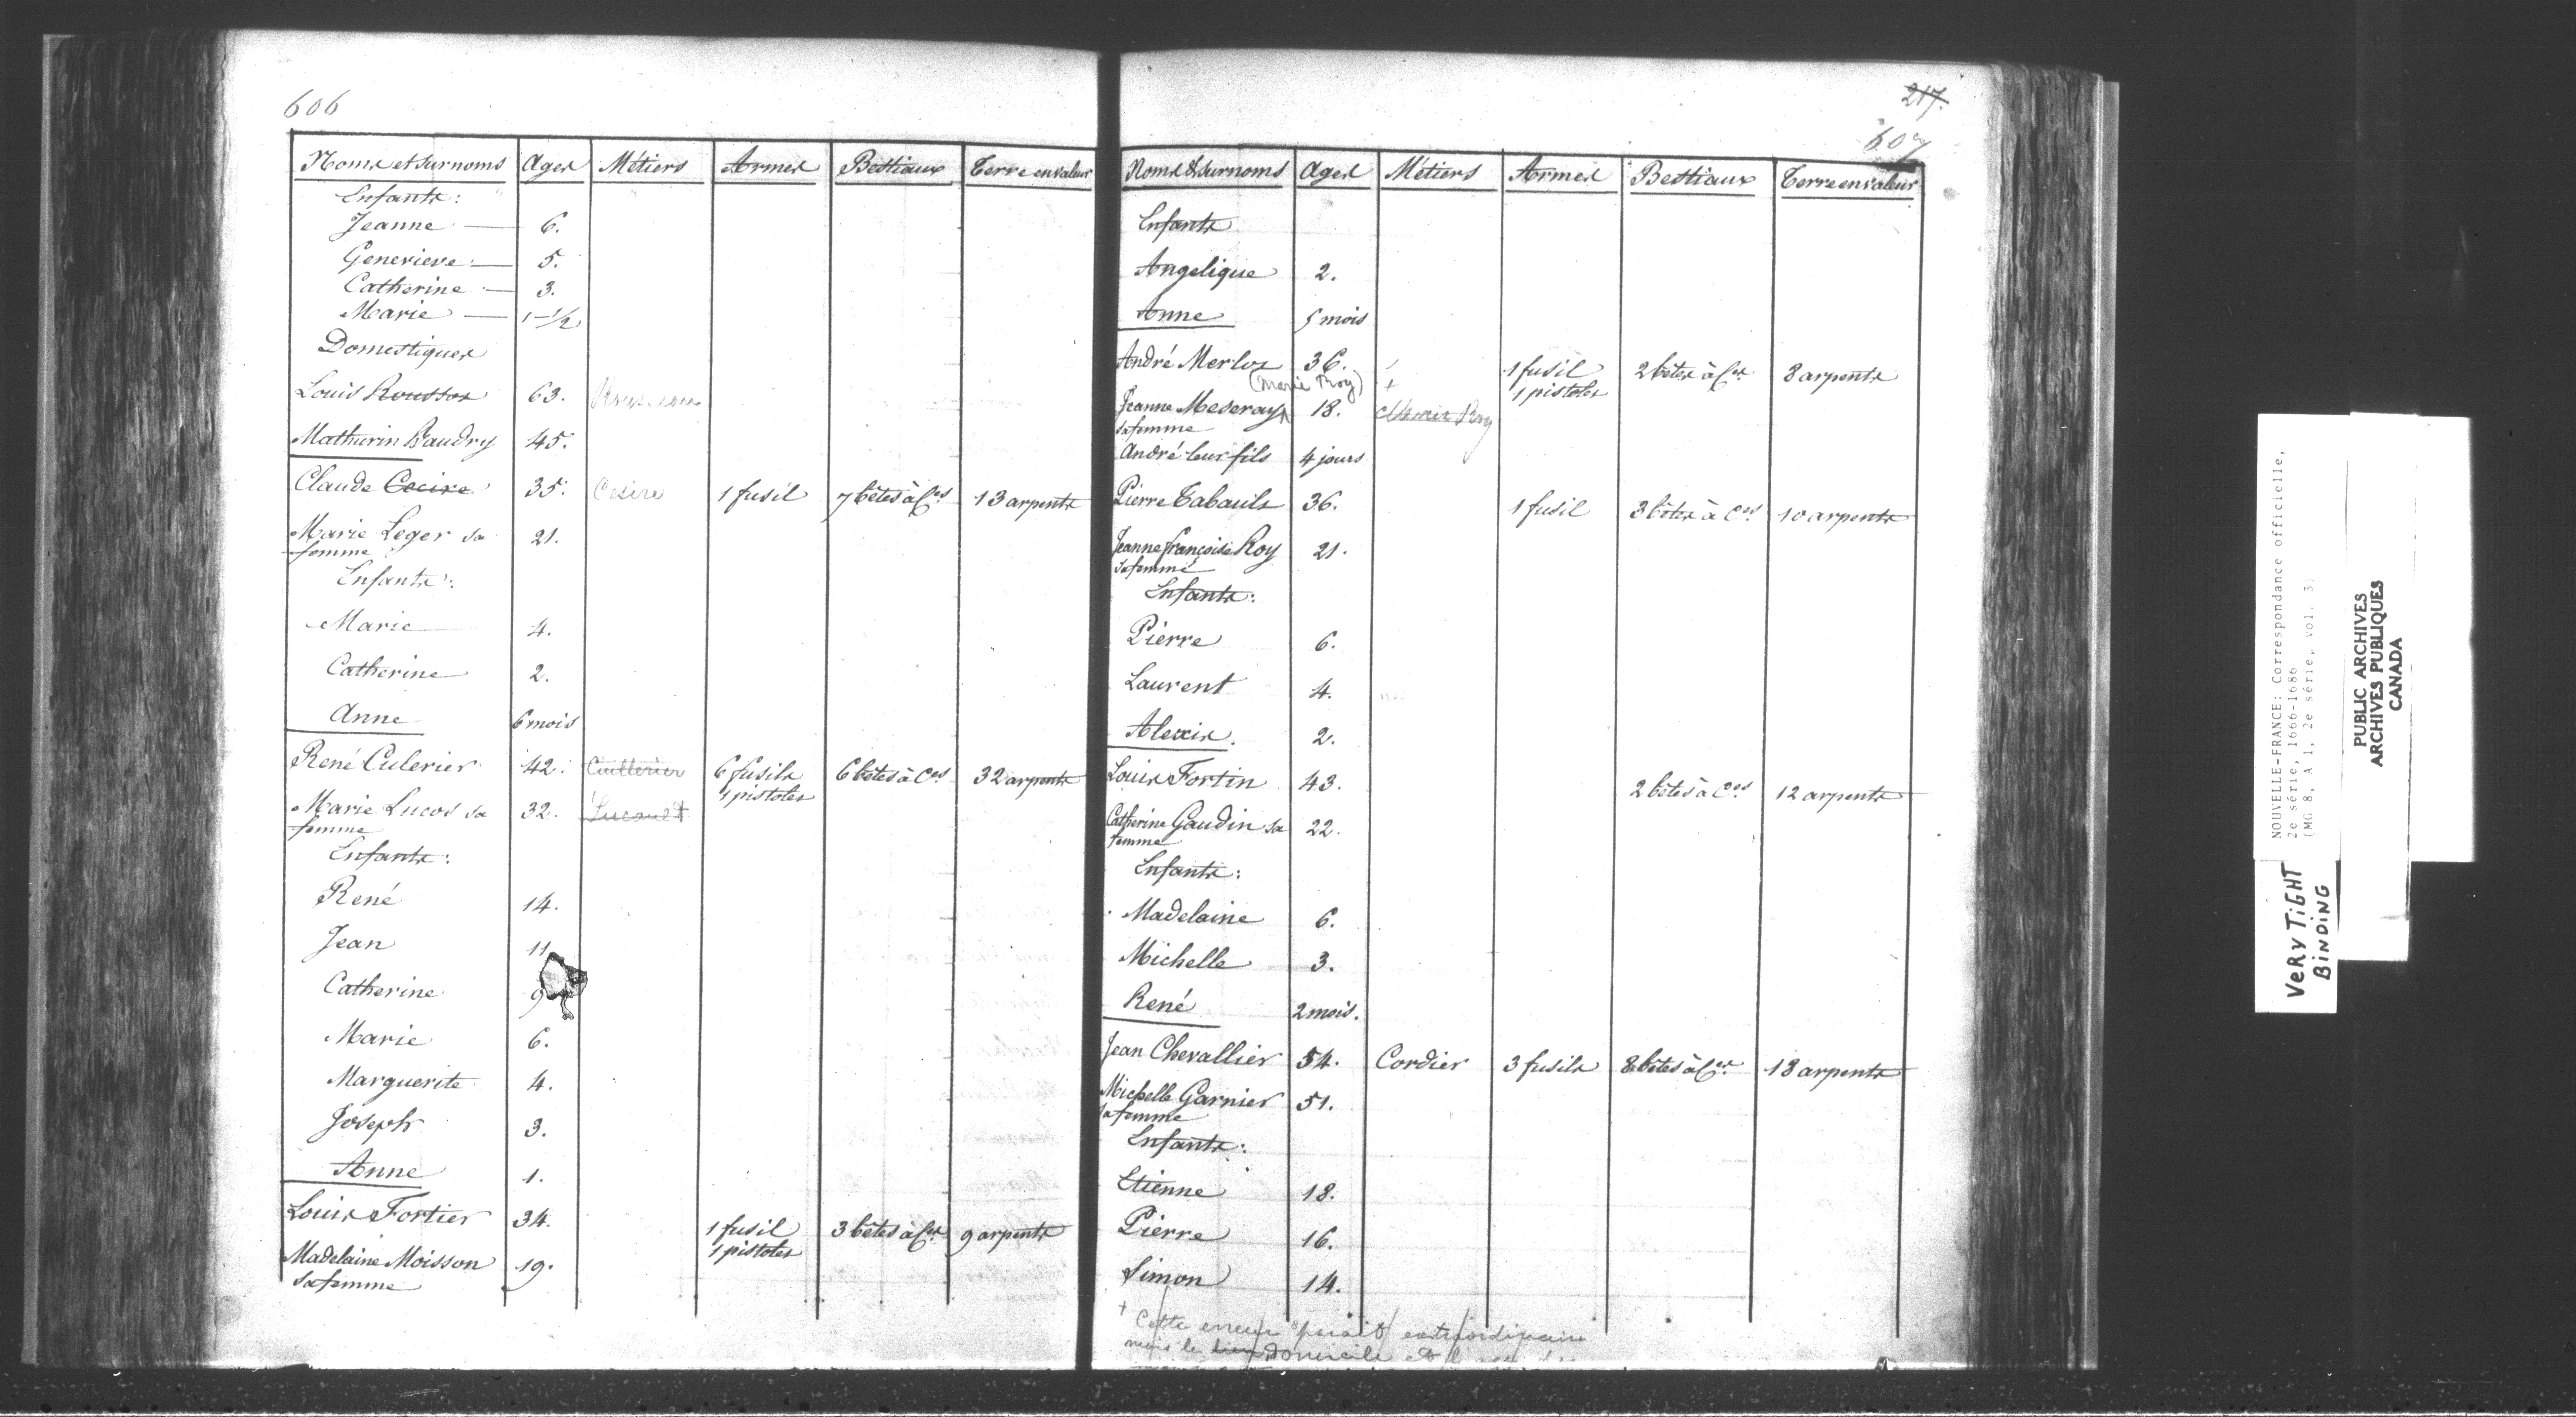 606
Noms et surnoms Ages Métiers Armes Bestiaux Terre en valeur
Enfants:
Jeanne — 6.
Genevieve — 5.
Catherine — 3.
Marie — 1-1/2
Domestiques
Louis Roussos 63.
Mathurin Baudry 45.
Claude Cecire 35. Cesire 1 fusil 7 bêtes à Ces 13 arpents
Marie Leger sa 21.
femme
Enfants:
Marie 4.
Catherine 2.
Anne 6 mois
René Culerier 42. Cuillerier 6 fusils 6 bêtes à Ces 32 arpents
1 pistolet
Marie Lucos sa 32. Lucault
femme
Enfants:
René 14.
Jean 11
Catherine 9
Marie 6.
Marguerite 4.
Joseph 3.
Anne 1.
Louis Fortier 34. 1 fusil 3 bêtes à Ces 9 arpents
1 pistolet
Madelaine Moisson 19.
sa femme
217.
607
Noms & surnoms Ages Métiers Armes Bestiaux Terre en valeur
Enfants
Angelique 2.
Anne 5 mois
André Merlos 36. 1 fusil 2 bêtes à Ces 8 arpents
(Marie Roy) + 1 pistolet
Jeanne Meseray 18. Marie Roy
sa femme
André leur fils 4 jours
Pierre Tabault 36. 1 fusil 3 bêtes à Ces 10 arpents
Jeanne françoise Roy 21.
sa femme
Enfants:
Pierre 6.
Laurent 4.
Alexis. 2.
Louis Fortin 43. 2 bêtes à Ces 12 arpents
Catherine Gaudin sa 22.
femme
Enfants:
Madelaine 6.
Michelle 3.
René 2 mois.
Jean Chevallier 54. Cordier 3 fusils 8 bêtes à Ces 18 arpents
Michelle Garnier 51.
sa femme
Enfants:
Etienne 18.
Pierre 16.
Simon 14.
+ Cette erreur parait extraordinaire
mais le domicile et
NOUVELLE-FRANCE: Correspondance officielle,
2e série, 1666-1686
(MG 8, A 1, 2e série, vol. 3)
PUBLIC ARCHIVES
ARCHIVES PUBLIQUES
CANADA
VERY TIGHT
BINDING